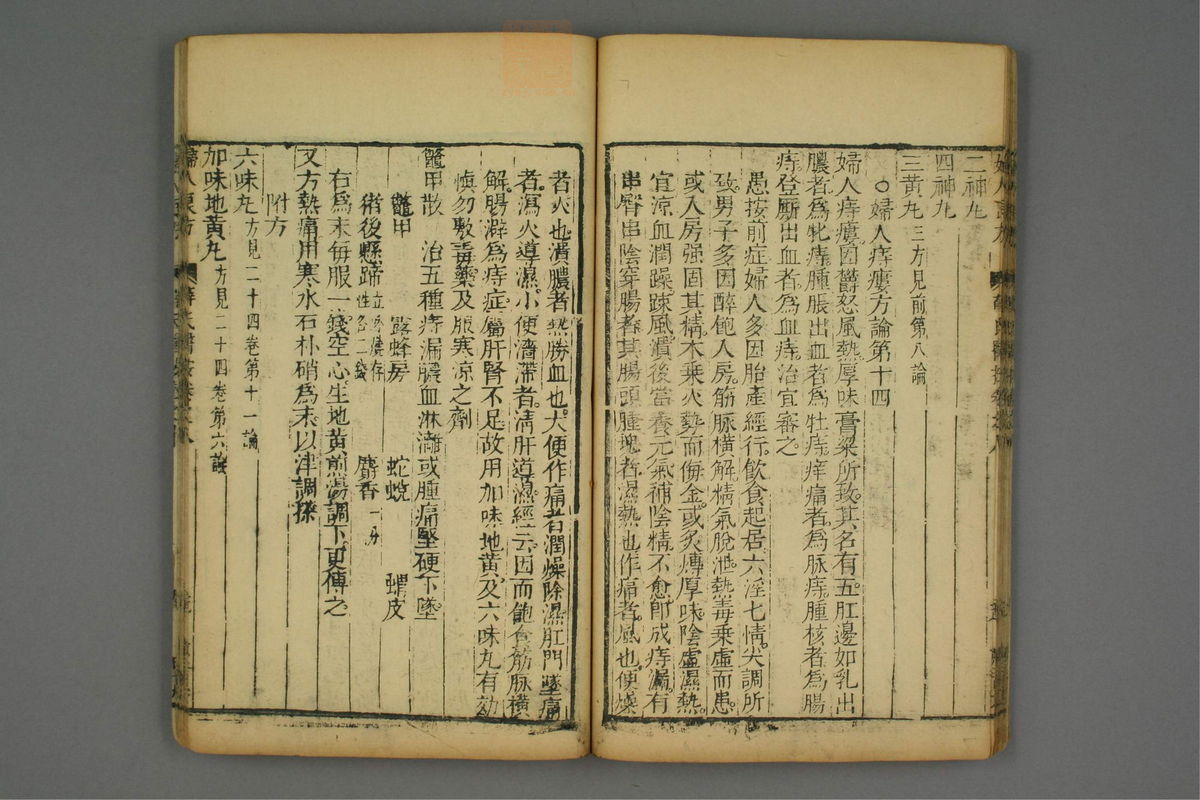 二神丸
四神丸
三黃丸 三方見前第八論
○婦人痔瘻方論第十四
婦人痔瘻因鬱怒風熱厚味膏粱所致其名有五肛邊如乳出
膿者為牝痔腫脹出血者為牡痔痒痛者為脉痔腫核者為腸
痔登厠出血者為血痔治宜審之
愚按前症婦人多因胎產經行飲食起居六淫七情失調所
致男子多因醉飽入房筋脉橫解精氣脫泄熱毒乗虛而患
或入房强固其精木乗火勢而侮金或炙煿厚味陰虛濕熱
宜涼血潤躁踈風潰後當養元氣補陰精不愈即成痔漏有
串臀串陰穿腸者其腸頭腫塊者濕熱也作痛者風也便燥
者火也潰膿者熱勝血也大便作痛者潤燥除濕肛門墜痛
者瀉火導濕小便濇滯者清肝導濕經云因而飽食筋脉橫
解腸澼為痔症屬肝腎不足故用加味地黃及六味丸有效
慎勿敷毒藥及服寒涼之劑
鼈甲散 治五種痔漏膿血淋灕或腫痛堅硬下墜
鼈甲 露蜂房 蛇蛻 蝟皮
術後懸蹄 各二錢 麝香一分
右為末每服一錢空心生地黃煎湯調下更傅之
又方熱痛用寒水石朴硝為末以津調搽
附方
六味丸 方見二十四卷第十一論
加味地黃丸 方見二十四卷第六論